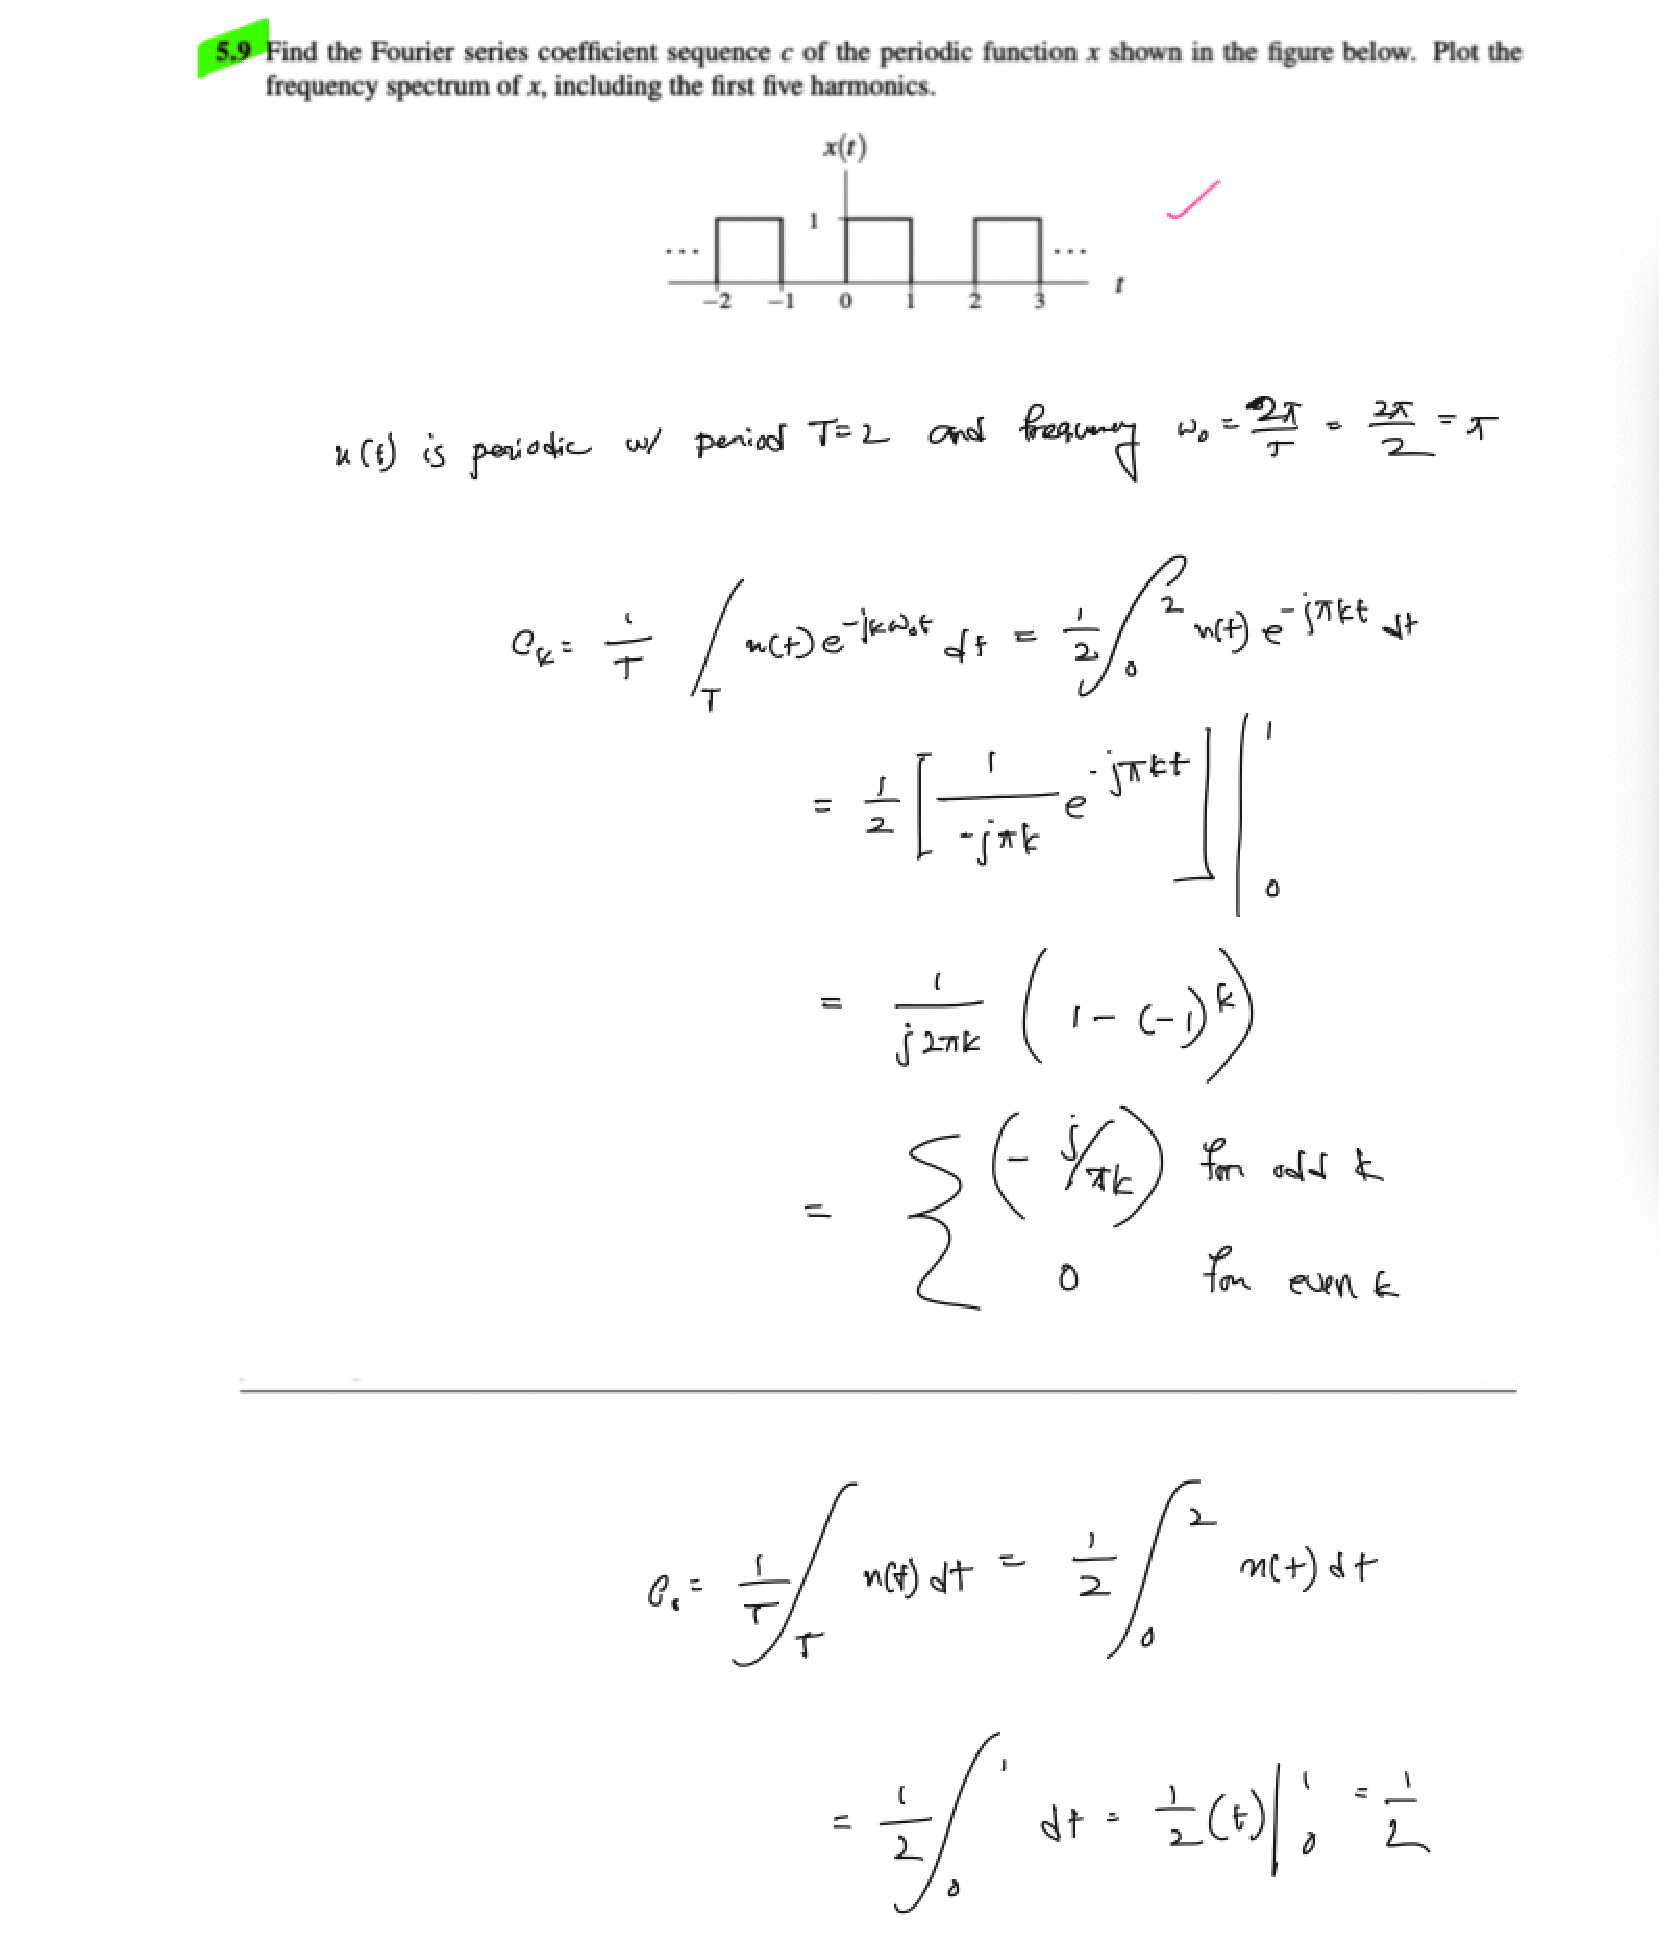 5.9 Find the Fourier series coefficient sequence c of the periodic function x shown in the figure below. Plot the
frequency spectrum of x, including the first five harmonics.
x(t)
1
... ...
-2 -1 0 1 2 3 t
x(t) is periodic w/ period T=2 and frequency ω₀ = 2π/T = 2π/2 = π
c_k = 1/T ∫_T x(t) e^{-jkω₀t} dt = 1/2 ∫_0^2 x(t) e^{-jπkt} dt
= 1/2 [ 1/(-jπk) e^{-jπkt} ] |_0^1
= 1/(j2πk) (1 - (-1)^k)
= { (- j/πk) for odd k
0 for even k
c₀ = 1/T ∫_T x(t) dt = 1/2 ∫_0^2 x(t) dt
= 1/2 ∫_0^1 dt = 1/2 (t) |_0^1 = 1/2